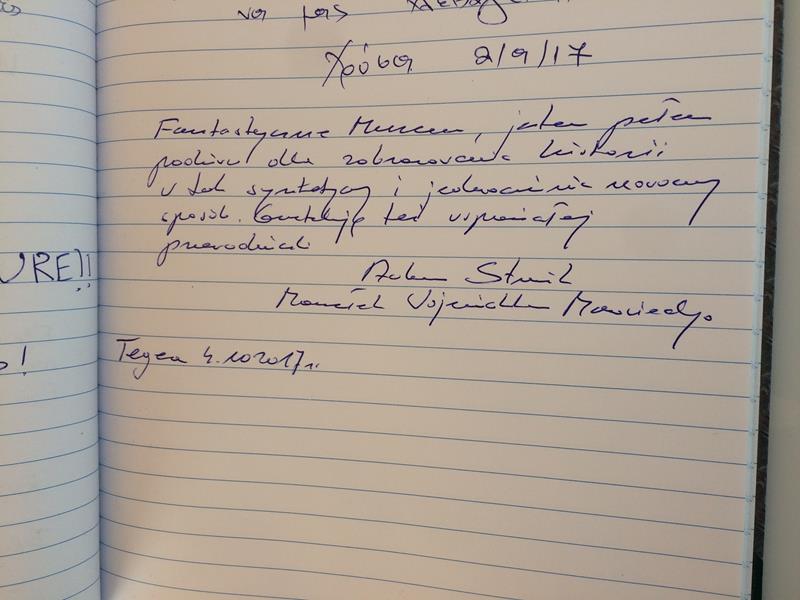 να μας
Χρύσα 2/9/17
Fantastyczne Muzeum, jestem pełen
podziwu dla zobrazowania historii
w tak syntetyczny i jednocześnie nowoczesny
sposób. Gratuluję też wspaniałej
przewodniczki
Adam Struzik
Marszałek Województwa Mazowieckiego
Tegea 4.10.2017r.
URE!!
!